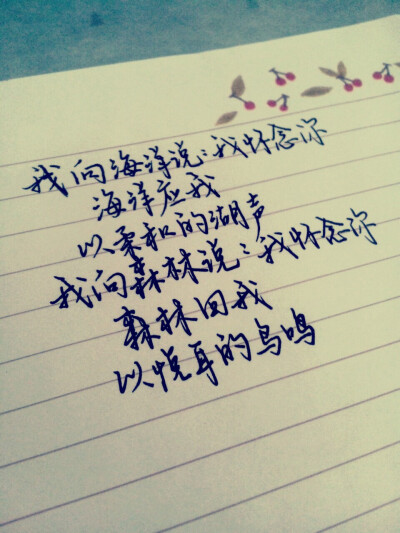 我向海洋说：我怀念你
海洋应我
以柔和的潮声
我向森林说：我怀念你
森林回我
以悦耳的鸟鸣